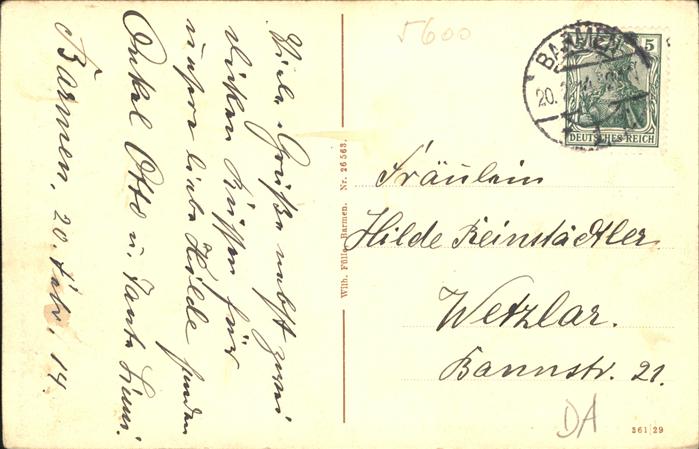 Barmen, 20. Febr. 14.
Viele Grüße nebst zwei
dicken Küssen für
unsere liebe Hilde senden
Onkel Otto u. Tante Emmi.
Wilh. Fülle, Barmen. Nr. 26563.
5600
BARMEN
20. 2. 14
5
DEUTSCHES REICH
Fräulein
Hilde Reinstädtler
Wetzlar.
Bannstr. 21.
DA
361 29